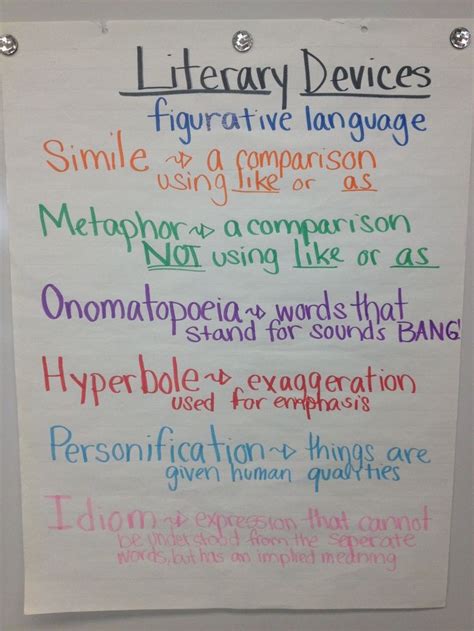 Literary Devices
figurative language
Simile ↝ a comparison
using like or as
Metaphor ↝ a comparison
NOT using like or as
Onomatopoeia ↝ words that
stand for sounds BANG!
Hyperbole ↝ exaggeration
used for emphasis
Personification ↝ things are
given human qualities
Idiom ↝ expression that cannot
be understood from the seperate
words, but has an implied meaning